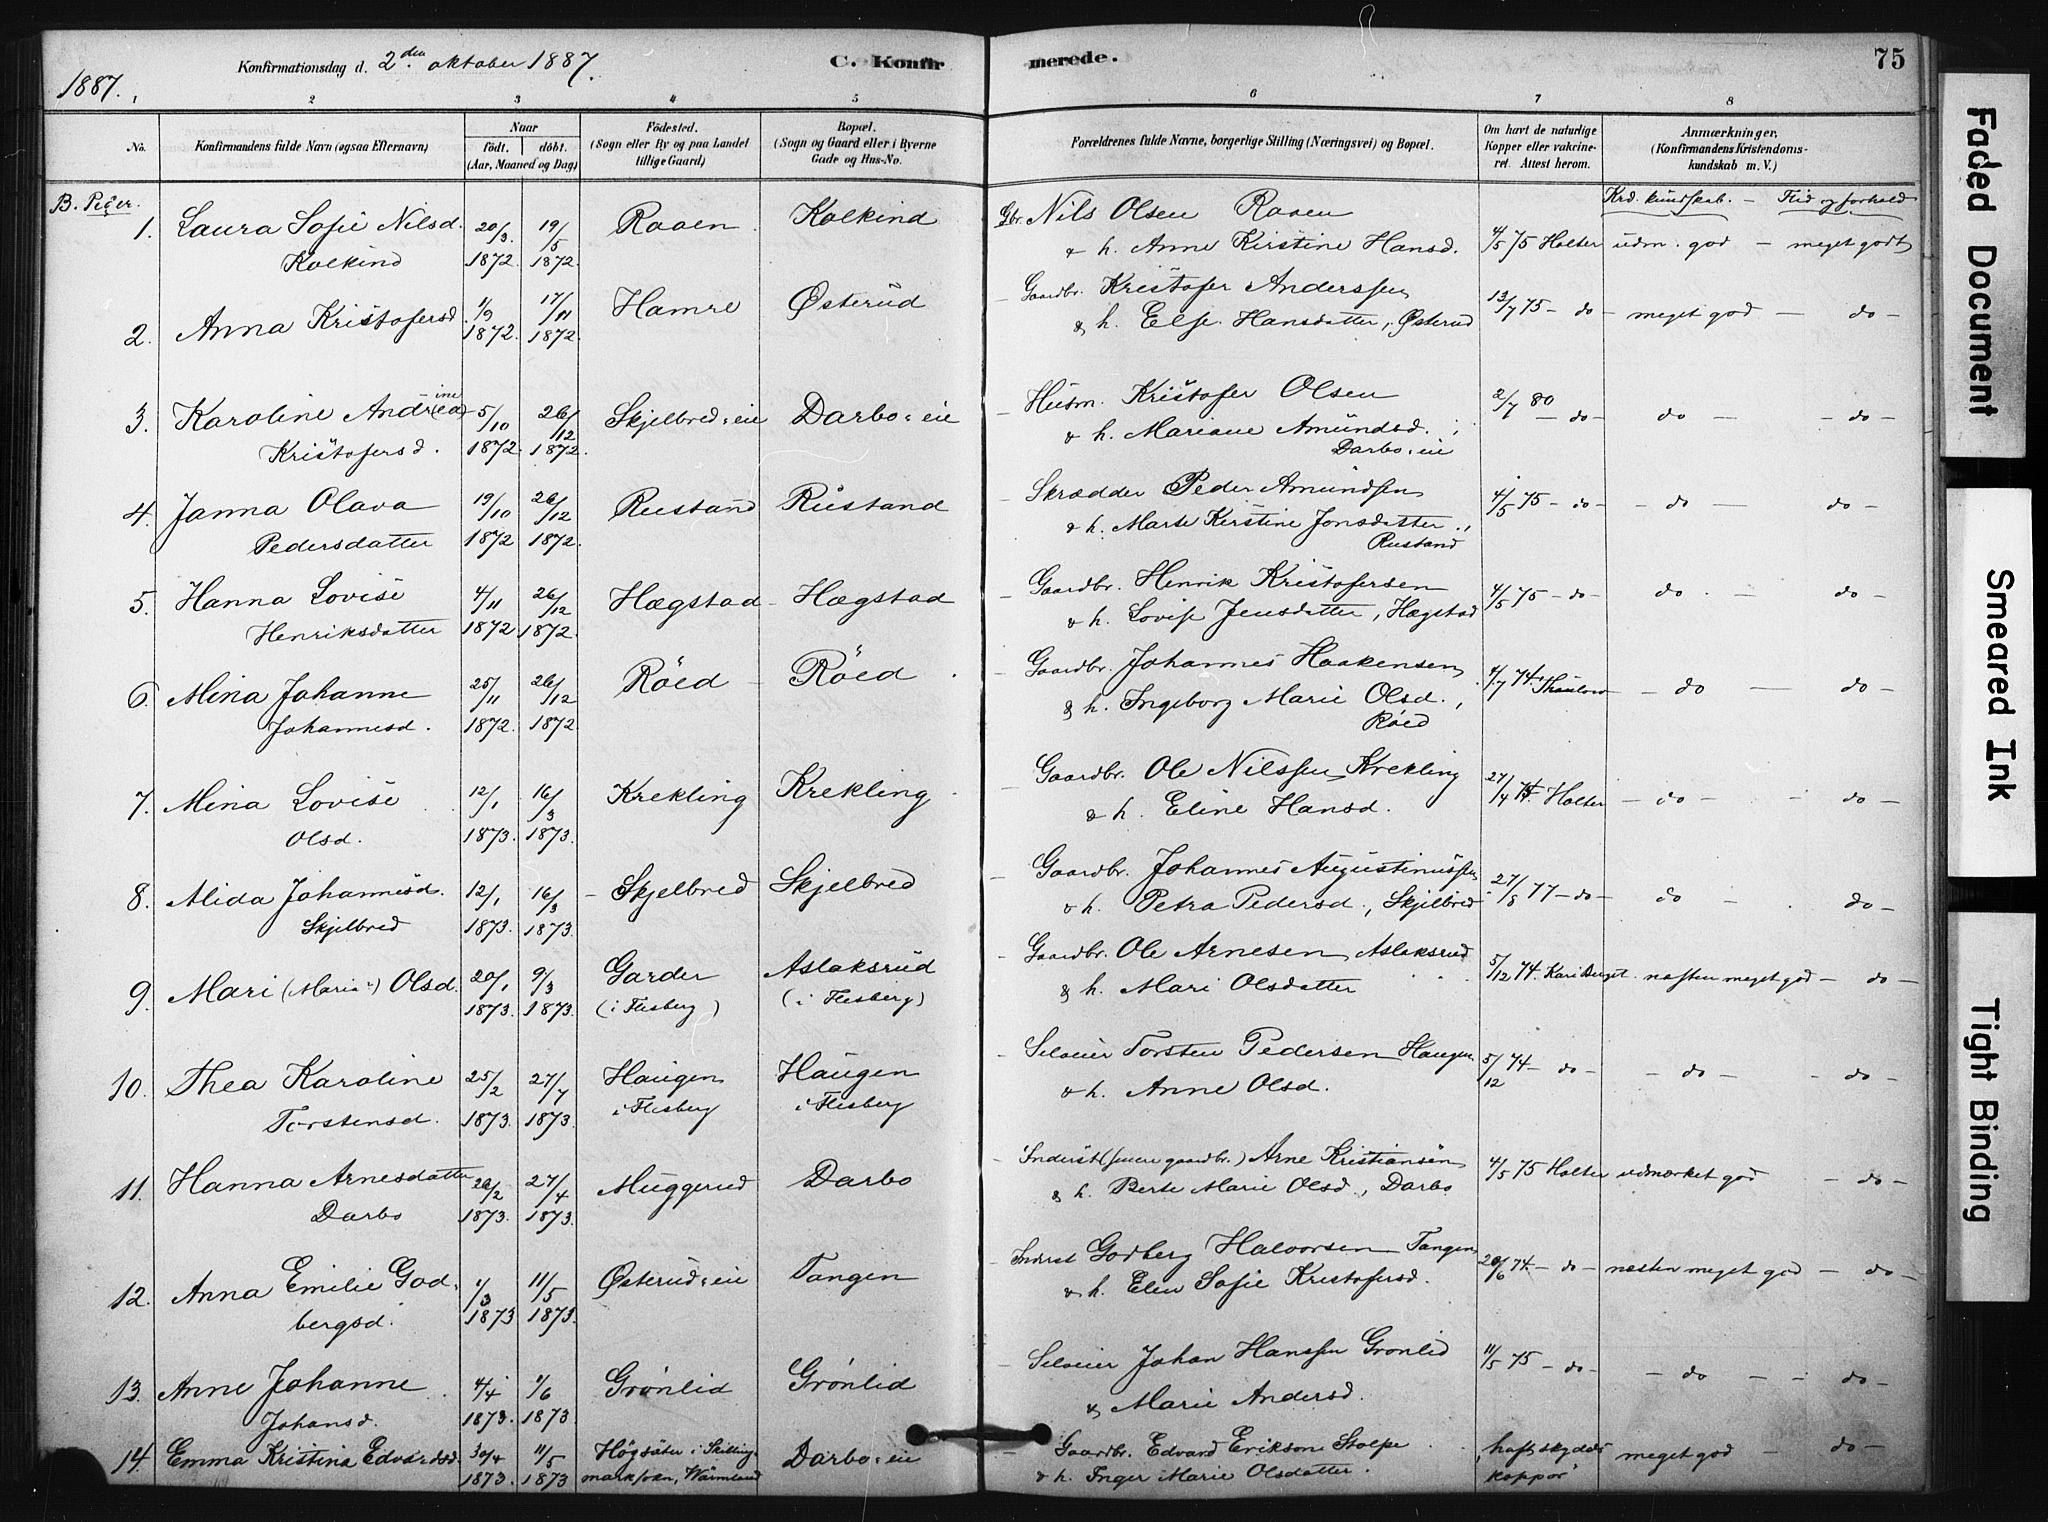 1887.
Konfirmationsdag d. 2den oktober 1887.
C. Konfir
merede.
75
1 2 3 4 5 6 7 8
No.
Konfirmandens fulde Navn (ogsaa Efternavn)
Naar
födt. döbt.
(Aar, Maaned og Dag)
Födested.
(Sogn eller By og paa Landet
tillige Gaard)
Bopæl.
(Sogn og Gaard eller i Byerne
Gade og Hus-No.
Forældrenes fulde Navne, borgerlige Stilling (Næringsvei) og Bopæl.
Om havt de naturlige
Kopper eller vakcine-
ret. Attest herom.
Anmærkninger.
(Konfirmandens Kristendoms-
kundskab m. V.)
B. Piger.
Krd. kundskab. – Flid og forhold
1. Laura Sofie Nilsd. 20/3 19/5 Raaen Kolkind Gbr. Nils Olsen Raaen
Kolkind 1872. 1872. & h. Anne Kirstine Hansd. 4/5 75 Holter udm. god – meget godt
2. Anna Kristofersd. 1/9 17/11 Hamre Østerud – Gaardbr. Kristofer Anderssen
1872. 1872. & h. Else Hansdatter, Østerud 13/7 75 – do – meget god – do –
3. Karoline Andrea (ine) 5/10 26/12 Skjelbred=eie Darbo=eie – Husm. Kristofer Olsen 2/7 80 – do – do – – do –
Kristofersd. 1872. 1872. & h. Mariane Amundsd.
Darbo=eie
4. Janna Olava 19/10 26/12 Rustand Rustand – Skrædder Peder Amundsen 4/5 75 – do – – do – do –
Pedersdatter 1872 1872. & h. Marte Kirstine Jonsdatter.,
Rustand
5. Hanna Lovise 4/11 26/12 Hægstad – Hægstad – Gaardbr. Henrik Kristofersen 4/5 75 – do – do. – do –
Henriksdatter 1872 1872. & h. Lovise Jensdatter, Hægstad
6. Mina Johanne 25/11 26/12 Röed – Röed – Gaardbr. Johannes Haakensen 4/7 74. Thaulow – do – do –
Johannesd. 1872. 1872. & h. Ingeborg Marie Olsd.,
Röed
7. Mina Lovise 12/1 16/3 Krekling Krekling Gaardbr. Ole Nilssen Krekling 27/4 Holter – do – do –
Olsd. 1873. 1873. & h. Eline Hansd.
8. Alida Johannesd. 12/1 16/3 – Skjelbred Skjelbred – Gaardbr. Johannes Augustinussen
Skjelbred 1873. 1873. & h. Petra Pedersd., Skjelbred 27/8 77 – do – do – do –
9. Mari (Maria) Olsd. 20/1 9/3 Garder Aslaksrud – Gaardbr. Ole Arnesen Aslaksrud
1873. 1873. (i Flesberg) (i Flesberg) & h. Mari Olsdatter 5/12 74. Kari Berget. næsten meget god – do –
10. Thea Karoline 25/2 27/7 Haugen Haugen – Selveier Torsten Pedersen Haugen 5/12 74 – do – – do – – do –
Torstensd. 1873. 1873. i Flesberg i Flesberg & h. Anne Olsd.
11. Hanna Arnesdatter 26/2 27/4 Muggerud Darbo – Inderst (senere gaardbr.) Arne Kristiansen 4/5 75 Holter udmærket god – do –
Darbo 1873. 1873. & h. Berte Marie Olsd., Darbo
12. Anna Emilie God= 1/3 11/5 Østerud=eie Tangen Inderst Godberg Halvorsen Tangen 20/6 74. – do – næsten meget god – do –
bergsd. 1873 1873. & h. Elen Sofie Kristofersd.
13. Anne Johanne 4/4 1/6 Grönlid Grönlid – Selveier Johan Hanssen Grönlid 11/5 75 – do – – do – – do –
Johansd. 1873. 1873. & Marie Andersd.
14. Emma Kristina Edvardsd. 30/4 11/5 Högsäter i Skilling= Darbo=eie – Gaardbr. Edvard Erikson Stolpe "haft skydds meget god do –
1873. 1873 marksokn, Wärmland & h. Inger Marie Olsdatter. koppor"
Faded Document
Smeared Ink
Tight Binding